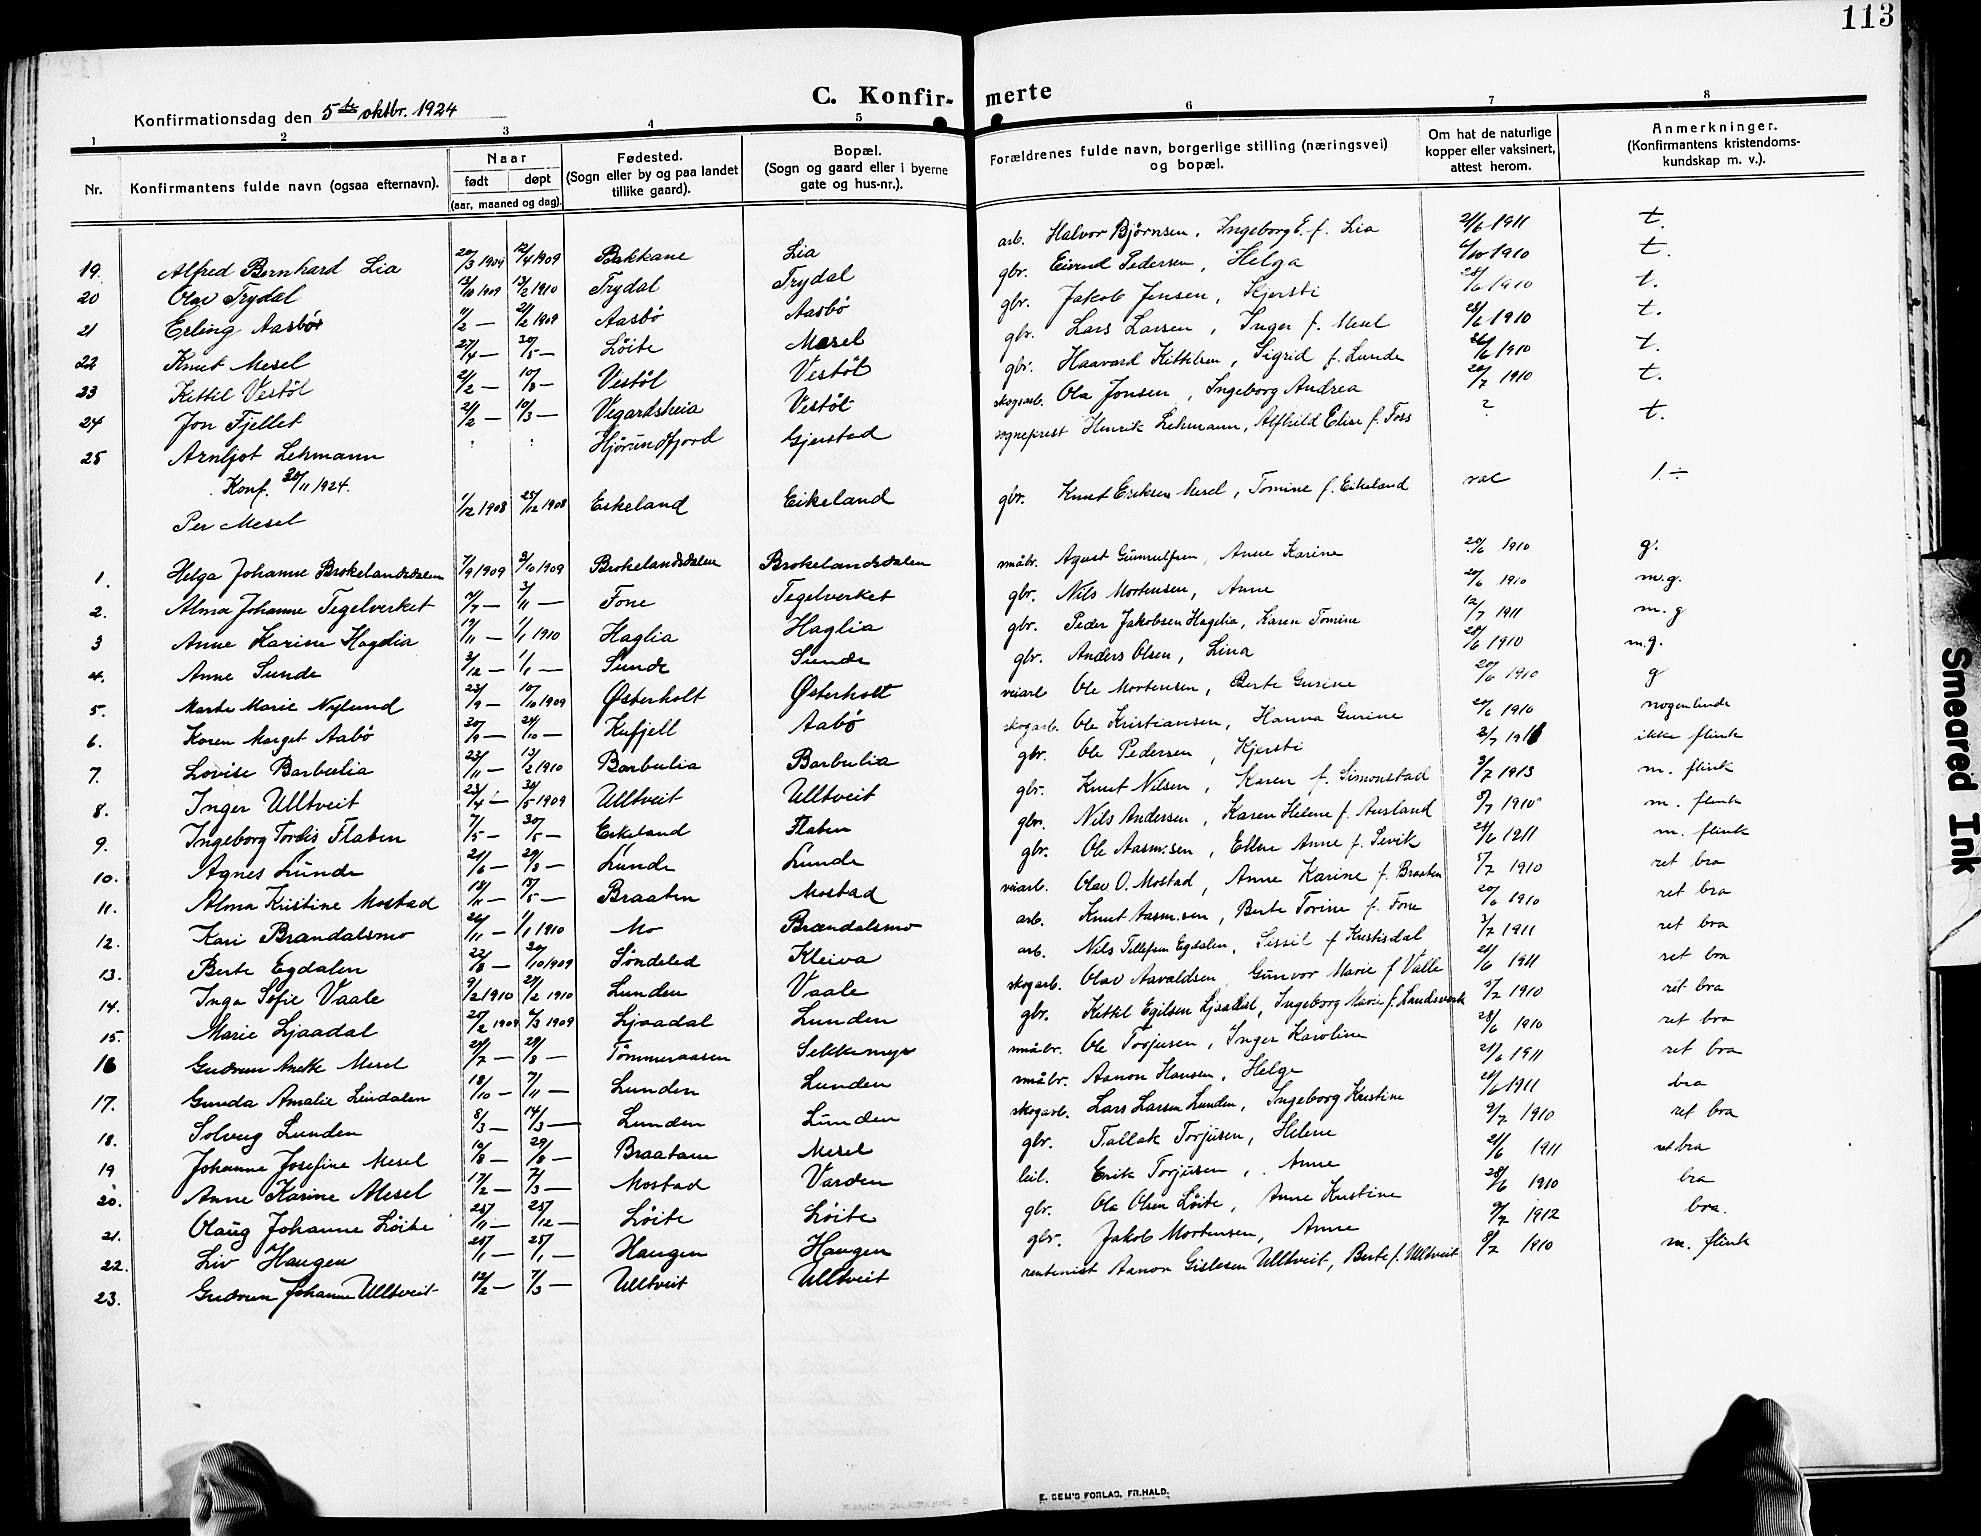 113
Konfirmationsdag den 5te oktbr. 1924
C. Konfir- merte
1 2 3 4 5 6 7 8
Nr. Konfirmantens fulde navn (ogsaa efternavn). Naar født døpt (aar, maaned og dag). Fødested. (Sogn eller by og paa landet tillike gaard). Bopæl. (Sogn og gaard eller i byerne gate og hus-nr.). Forældrenes fulde navn, borgerlige stilling (næringsvei) og bopæl. Om hat de naturlige kopper eller vaksinert, attest herom. Anmerkninger. (Konfirmantens kristendoms-kundskap m. v.).
19. Alfred Bernhard Lia 20/3 1909 12/4 1909 Bakkane Lia arb. Halvor Bjørnsen, Ingeborg E. f. Lia 21/6 1911 t.
20 Olav Trydal 13/10 1909 13/2 1910 Trydal Trydal gbr. Eivind Pedersen, Helga 6/10 1910 t.
21 Erling Aasbø 11/2 — 21/2 1909 Aasbø Aasbø gbr. Jakob Jensen, Kjersti 28/6 1910 t.
22 Knut Mesel 27/4 — 30/5 — Løite Mesel gbr. Lars Larsen, Inger f. Mesel 28/6 1910 t.
23 Kittil Vestøl 21/2 — 10/8 — Vestøl Vestøl gbr. Haavard Kittilsen, Sigrid f. Lunde 26/6 1910 t.
24 Jon Fjellet 21/2 — 10/3 — Vegardsheia Vestøl skogarb. Ola Jonsen, Ingeborg Andrea 20/7 1910 t.
25 Arnljot Lehmann : : Hjørundfjord Gjerstad sogneprest Henrik Lehmann, Alfhild Elise f. Foss ? t.
Konf. 30/11 1924.
Per Mesel 1/12 1908 25/12 1908 Eikeland Eikeland gbr. Knut Eriksen Mesel, Tomine f. Eikeland vac 1.÷
1. Helga Johanne Brokelandsdalen 7/9 1909 3/10 1909 Brokelandsdalen Brokelandsdalen småbr. Agust Gunnulfsen, Anne Karine 20/6 1910 g.
2. Alma Johanne Tegelverket 7/7 — 3/11 — Fone Tegelverket gbr. Nils Mortensen, Anne 20/6 1910 m.g.
3 Anne Karine Haglia 19/11 — 1/1 1910 Haglia Haglia gbr. Peder Jakobsen Hagelia, Karen Tomine 12/7 1911 m.g
4. Anne Sunde 3/12 — 1/1 — Sunde Sunde gbr. Anders Olsen, Lina 28/6 1910 m.g.
5. Marte Marie Nylund 23/9 — 10/10 1909 Østerholt Østerholt veiarb Ole Mortensen, Berte Gurine 20/6 1910 g
6. Karen Marget Aabø 20/9 — 24/10 — Kufjell Aabø skogarb. Ole Kristiansen, Hanna Gurine 20/6 1910 nogenlunde
7. Lovise Barbulia 23/11 — 13/2 1910 Barbulia Barbulia gbr. Ole Pedersen, Kjersti 2/7 1911 ikke flink
8. Inger Ulltveit 23/4 — 30/5 1909 Ulltveit Ulltveit gbr. Knut Nilsen, Karen f. Simonstad 3/7 1913 m. flink
9. Ingeborg Tordis Flaten 7/5 — 30/5 — Eikeland Flaten gbr. Nils Andersen, Karen Helene f. Ausland 8/7 1910 m. flink
10. Agnes Lunde 21/6 — 29/8 — Lunde Lunde gbr. Ole Aasm.sen, Ellen Anne f. Sevik 28/6 1911 m. flink
11. Alma Kristine Mostad 18/11 — 18/5 — Braaten Mostad veiarb. Olav O. Mostad, Anne Karine f. Braaten 5/7 1910 ret bra
12. Kari Brandalsmo 26/11 — 1/1 1910 Mo Brandalsmo arb. Knut Aasm.sen, Berte Torine f. Fone 20/6 1910 ret bra
13. Berte Egdalen 22/8 — 30/10 1909 Søndeled Kleiva arb. Nils Tellefsen Egdalen, Sissil f Kustisdal 3/7 1911 ret bra
14. Inga Sofie Vaale 9/2 1910 27/2 1910 Lunden Vaale skogarb. Olav Aavaldsen Gunvor Marie f Valle 21/6 1911 ret bra
15. Marie Ljaadal 25/2 1909 6/3 1909 Ljaadal Lunden gbr. Kittil Egilsen Ljaadal, Ingeborg Marie f. Landsverk 5/7 1910 ret bra
16 Gudrun Anette Mesel 20/7 — 29/8 — Tømmeraasen Sekkemyr småbr. Ole Torjusen, Inger Karoline 28/6 1910 ret bra
17. Gunda Amalie Lindalen 18/10 — 7/11 — Lunden Lunden småbr. Aanon Hansen, Helge 21/6 1911 ret bra
18. Solveig Lunden 8/3 — 14/3 — Lunden Lunden skogarb. Lars Larsen Lunden, Ingeborg Kristine 21/6 1911 bra
19 Johanne Josefine Mesel 10/8 — 29/8 — Braatane Mesel gbr. Tallak Torjusen, Helene 9/7 1910 ret bra
20. Anne Karine Mesel 17/2 — 7/3 — Mostad Varden leil. Erik Torjusen, Anne 21/6 1911 ret bra
21. Olaug Johanne Løite 25/11 — 25/12 — Løite Løite gbr. Ola Olsen Løite, Anne Kristine 28/6 1910 bra
22. Liv Haugen 20/1 — 25/1 — Haugen Haugen gbr. Jakob Mortensen, Anne 9/7 1912 bra.
23. Gudrun Johanne Ulltveit 12/2 — 7/3 — Ulltveit Ulltveit rentenist Aanon Gislesen Ulltveit, Berte f. Ulltveit 8/7 1910 m. flink
E. SEM'S FORLAG, FR.HALD.
Smeared Ink